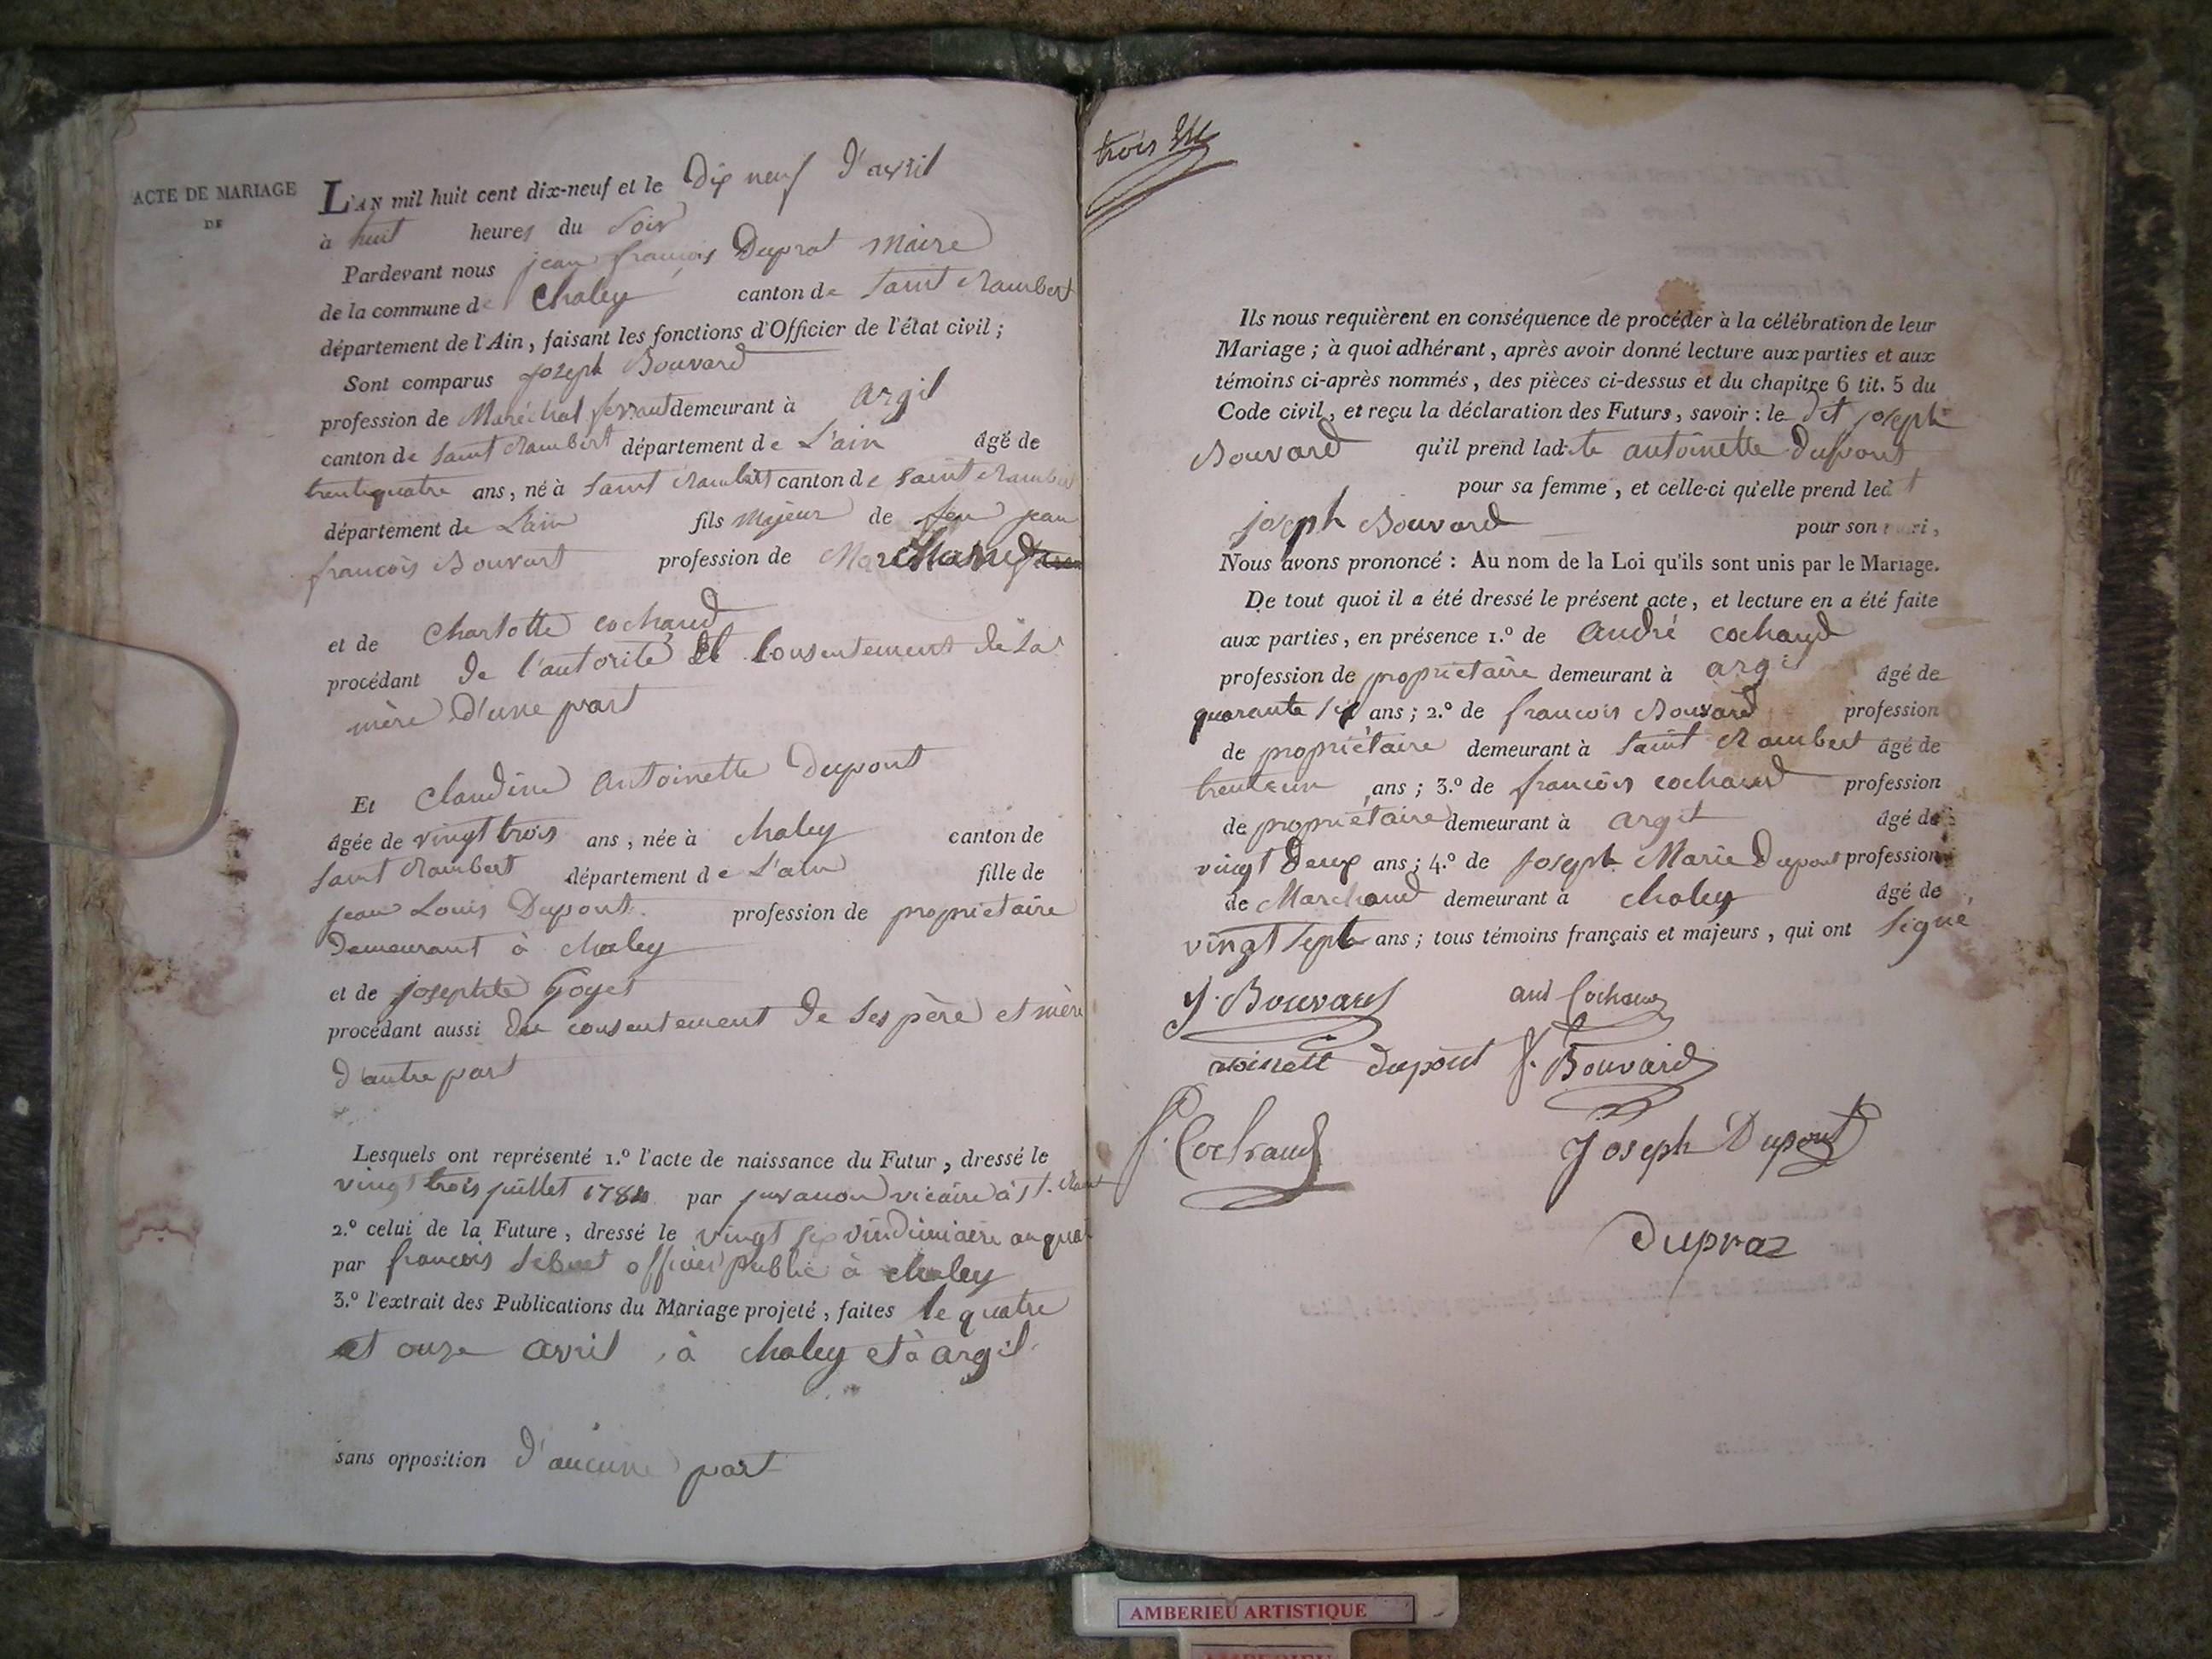 ACTE DE MARIAGE
DE
L'AN mil huit cent dix-neuf et le Dix neuf d'avril
à huit heures du Soir
Pardevant nous jean françois Duprat Maire
de la commune de Chaley canton de Saint Rambert
département de l'Ain, faisant les fonctions d'Officier de l'état civil ;
Sont comparus joseph Bouvard
profession de Maréchal ferrant demeurant à argil
canton de Saint Rambert département de L'ain âgé de
trentequatre ans, né à Saint Rambert canton de Saint Rambert
département de Lain fils Majeur de feu jean
françois Bouvart profession de
et de Charlotte cochand
procédant de l'autorité et Consentement de Sa
mère d'une part
Et Claudine Antoinette Dupont
âgée de vingt trois ans, née à chaley canton de
Saint Rambert département de L'ain fille de
jean Louis Dupont profession de proprietaire
Demeurant à chaley
et de josephte Goyet
procédant aussi du consentement de Ses père et mère
D'autre part
Lesquels ont représenté 1.º l'acte de naissance du Futur, dressé le
vingt trois juillet par vicaire à St.
2.º celui de la Future, dressé le vingt six vindimiaire an
par françois officier public à chaley
3.º l'extrait des Publications du Mariage projeté, faites le quatre
et onze avril, à chaley et à argil
sans opposition D'aucune part
trois
Ils nous requièrent en conséquence de procéder à la célébration de leur
Mariage ; à quoi adhérant, après avoir donné lecture aux parties et aux
témoins ci-après nommés, des pièces ci-dessus et du chapitre 6 tit. 5 du
Code civil, et reçu la déclaration des Futurs, savoir : le dit joseph
Bouvard qu'il prend ladite antoinette dupont
pour sa femme, et celle-ci qu'elle prend led t
joseph Bouvard pour son mari,
Nous avons prononcé : Au nom de la Loi qu'ils sont unis par le Mariage.
De tout quoi il a été dressé le présent acte, et lecture en a été faite
aux parties, en présence 1.º de André cochand
profession de proprietaire demeurant à argil âgé de
quarante six ans ; 2.º de francois Bouvard profession
de propriétaire demeurant à Saint Rambert âgé de
trenteun ans ; 3.º de françois cochand profession
de propriétaire demeurant à argil âgé de
vingt Deux ans ; 4.º de Joseph Marie Dupont profession
de Marchand demeurant à chaley âgé de
vingt Sept ans ; tous témoins français et majeurs, qui ont Signé
J. Bouvard and Cochand
dupont f. Bouvard
f. Cochand Joseph Dupont
Dupraz
AMBERIEU ARTISTIQUE
AMBERIEU